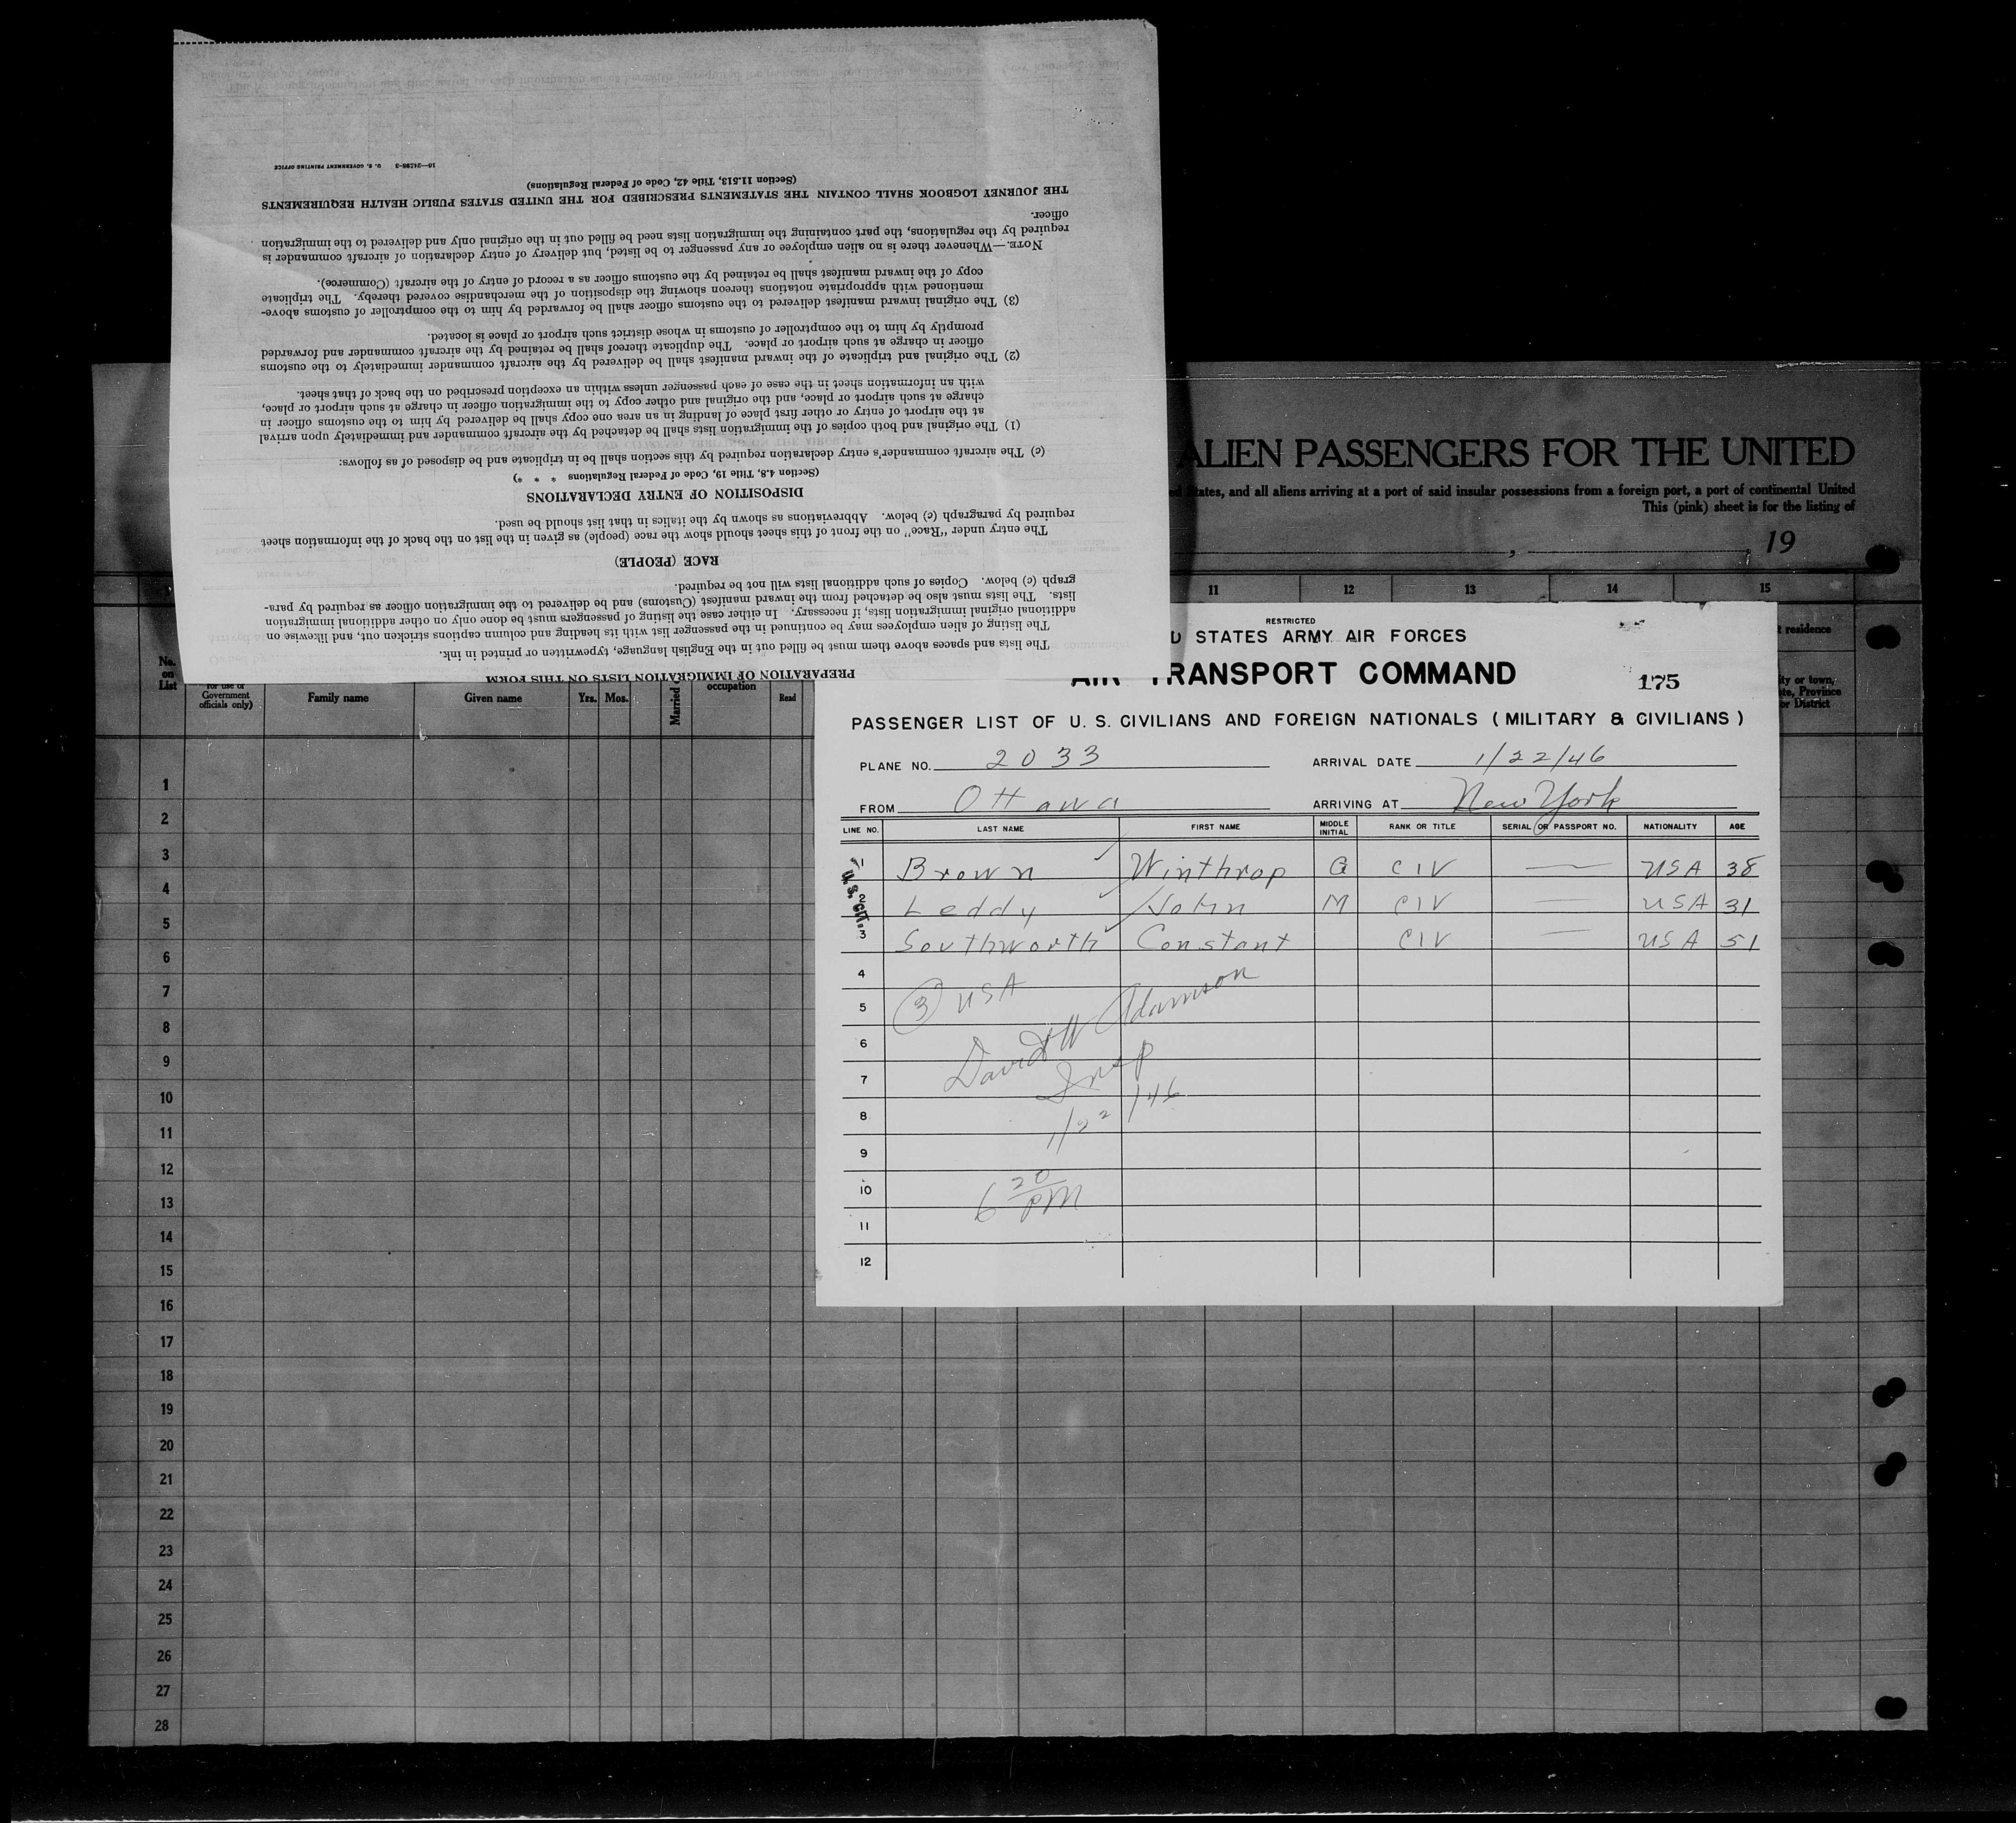 PREPARATION OF IMMIGRATION LISTS ON THIS FORM
The lists and spaces above them must be filled out in the English language, typewritten or printed in ink.
The listing of alien employees may be continued in the passenger list with its heading and column captions stricken out, and likewise on
additional original immigration lists, if necessary. In either case the listing of passengers must be done only on other additional immigration
lists. The lists must also be detached from the inward manifest (Customs) and be delivered to the immigration officer as required by para-
graph (c) below. Copies of such additional lists will not be required.
RACE (PEOPLE)
The entry under "Race" on the front of this sheet should show the race (people) as given in the list on the back of the information sheet
required by paragraph (c) below. Abbreviations as shown by the italics in that list should be used.
DISPOSITION OF ENTRY DECLARATIONS
(Section 4.8, Title 19, Code of Federal Regulations * * *)
(c) The aircraft commander's entry declaration required by this section shall be in triplicate and be disposed of as follows:
(1) The original and both copies of the immigration lists shall be detached by the aircraft commander and immediately upon arrival
at the airport of entry or other first place of landing in an area one copy shall be delivered by him to the customs officer in
charge at such airport or place, and the original and other copy to the immigration officer in charge at such airport or place,
with an information sheet in the case of each passenger unless within an exception prescribed on the back of that sheet.
(2) The original and triplicate of the inward manifest shall be delivered by the aircraft commander immediately to the customs
officer in charge at such airport or place. The duplicate thereof shall be retained by the aircraft commander and forwarded
promptly by him to the comptroller of customs in whose district such airport or place is located.
(3) The original inward manifest delivered to the customs officer shall be forwarded by him to the comptroller of customs above-
mentioned with appropriate notations thereon showing the disposition of the merchandise covered thereby. The triplicate
copy of the inward manifest shall be retained by the customs officer as a record of entry of the aircraft (Commerce).
NOTE.—Whenever there is no alien employee or any passenger to be listed, but delivery of entry declaration of aircraft commander is
required by the regulations, the part containing the immigration lists need be filled out in the original only and delivered to the immigration
officer.
THE JOURNEY LOGBOOK SHALL CONTAIN THE STATEMENTS PRESCRIBED FOR THE UNITED STATES PUBLIC HEALTH REQUIREMENTS
(Section 11.513, Title 42, Code of Federal Regulations)
16—24298-3 U. S. GOVERNMENT PRINTING OFFICE
ALIEN PASSENGERS FOR THE UNITED
States, and all aliens arriving at a port of said insular possessions from a foreign port, a port of continental United
This (pink) sheet is for the listing of
, , 19
11 12 13 14 15
residence
ity or town,
te, Province
or District
No.
on
List
for use of
Government
officials only)
Family name Given name Yrs. Mos. Married occupation Read
RESTRICTED
D STATES ARMY AIR FORCES
AIR TRANSPORT COMMAND
175
PASSENGER LIST OF U. S. CIVILIANS AND FOREIGN NATIONALS (MILITARY & CIVILIANS)
PLANE NO. 2033 ARRIVAL DATE 1/22/46
FROM Ottawa ARRIVING AT New York
LINE NO. LAST NAME FIRST NAME MIDDLE INITIAL RANK OR TITLE SERIAL OR PASSPORT NO. NATIONALITY AGE
U.S. CIT.
1 Brown Winthrop G CIV — USA 38
2 Leddy John M CIV — USA 31
3 Southworth Constant CIV — USA 51
4
5 (3) USA
6 David W Adamson
7 Insp
8 1/22/46
9
10 6 20 PM
11
12
1
2
3
4
5
6
7
8
9
10
11
12
13
14
15
16
17
18
19
20
21
22
23
24
25
26
27
28